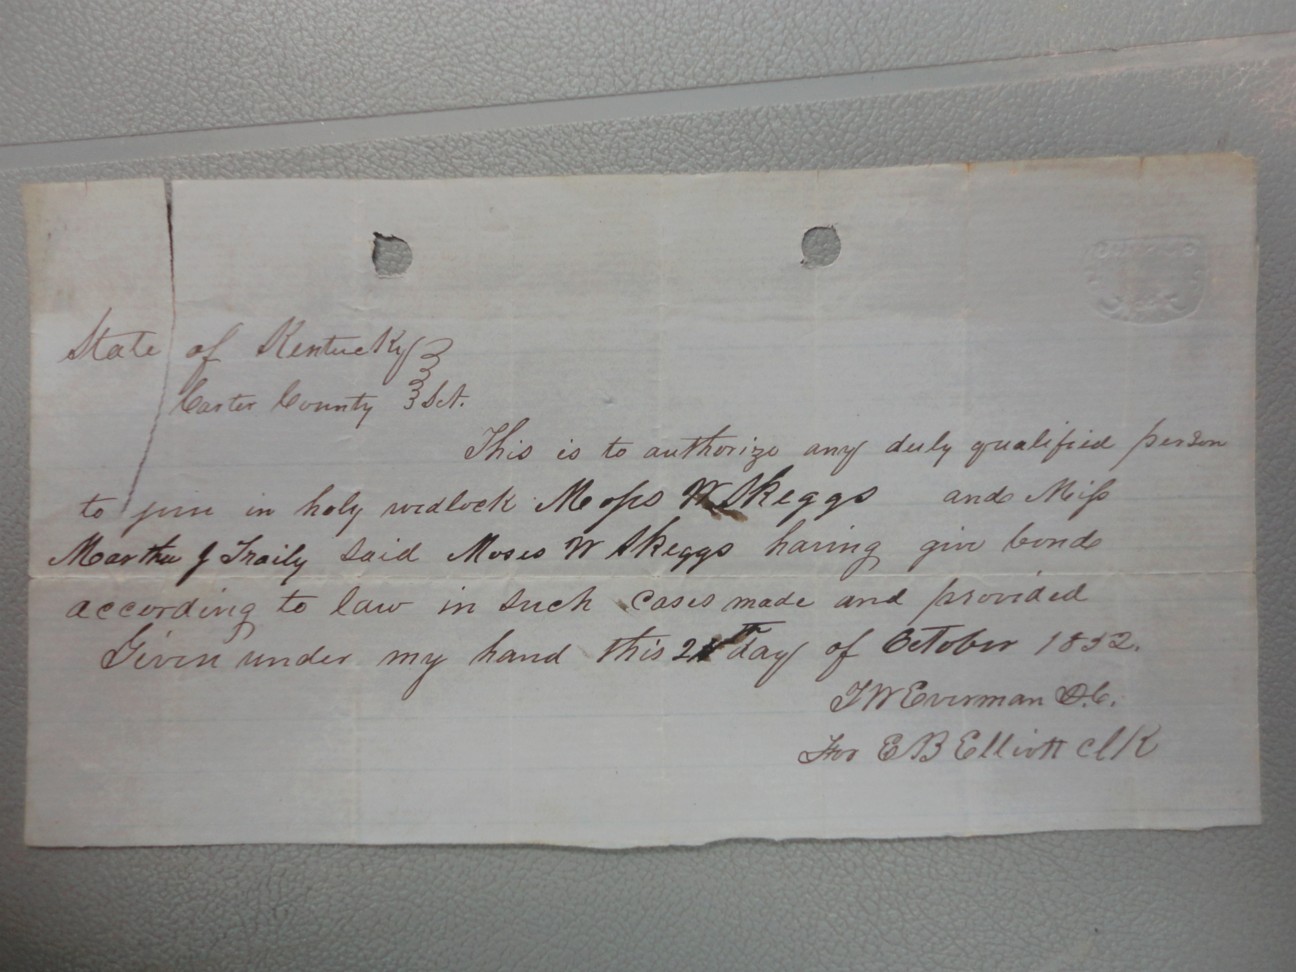 State of Kentucky
Carter County Sct.
This is to authorize any duly qualified person
to join in holy wedlock Moses W Skeggs and Miss
Martha J Traily said Moses W Skeggs having give bond
according to law in such cases made and provided
Given under my hand this day of October 1852.
T W Everman D.C.
For E B Elliott Clk